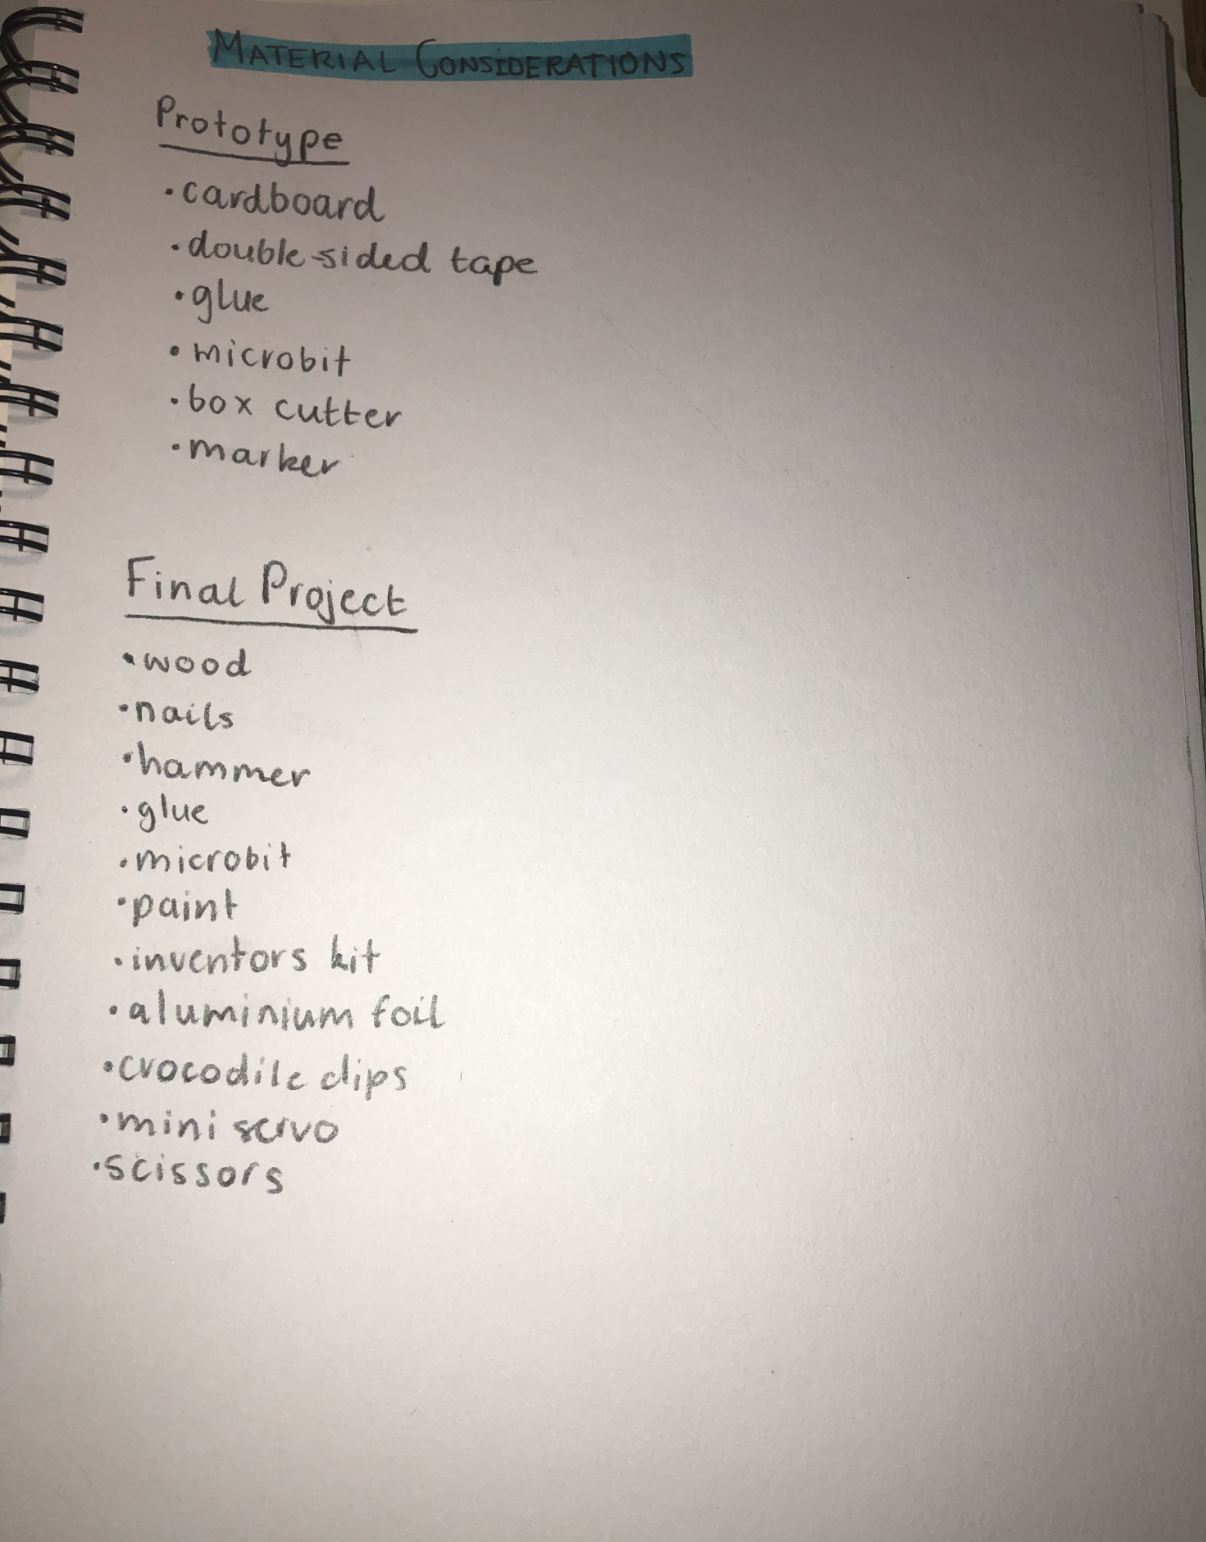 MATERIAL CONSIDERATIONS
Prototype
• cardboard
• double-sided tape
• glue
• microbit
• box cutter
• marker
Final Project
• wood
• nails
• hammer
• glue
• microbit
• paint
• inventors kit
• aluminium foil
• crocodile clips
• mini servo
• scissors